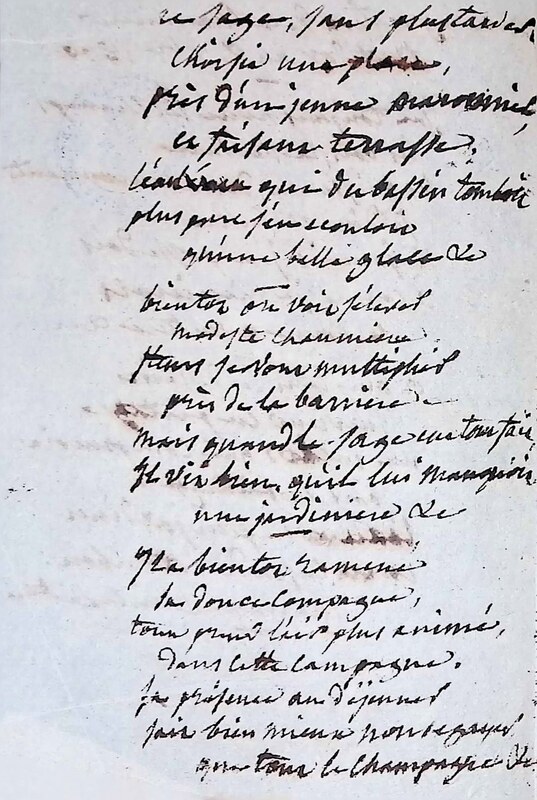 ce sage, sans plus tarder,
choisie une place,
près d'un jeune maronnier,
en faisant terrasse.
l'eau qui du bassin tomboit
plus pure s'en ecouloit
qu'une belle glace &c
bientot on voit s'élever
modeste chaumiere
fleurs se vont multiplier
près de la barriere
mais quand le sage eut tout fait,
Il vit bien, qu'il lui manquoit
une jardiniere &c
Il a bientot ramené
sa douce compagne,
tout prend l'air plus animé,
dans cette campagne.
sa présence au déjeuner
sait bien mieux nous egayer
que tout le champagne &c